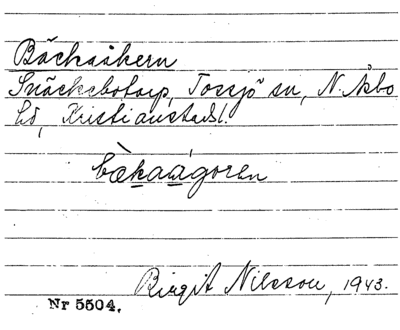 Bäckaåkern
Snäckebotorp, Tossjö sn, N. Åsbo
hd, Kristianstads l.
bæ̀kaágoren
Birgit Nilsson, 1943.
Nr 5504.